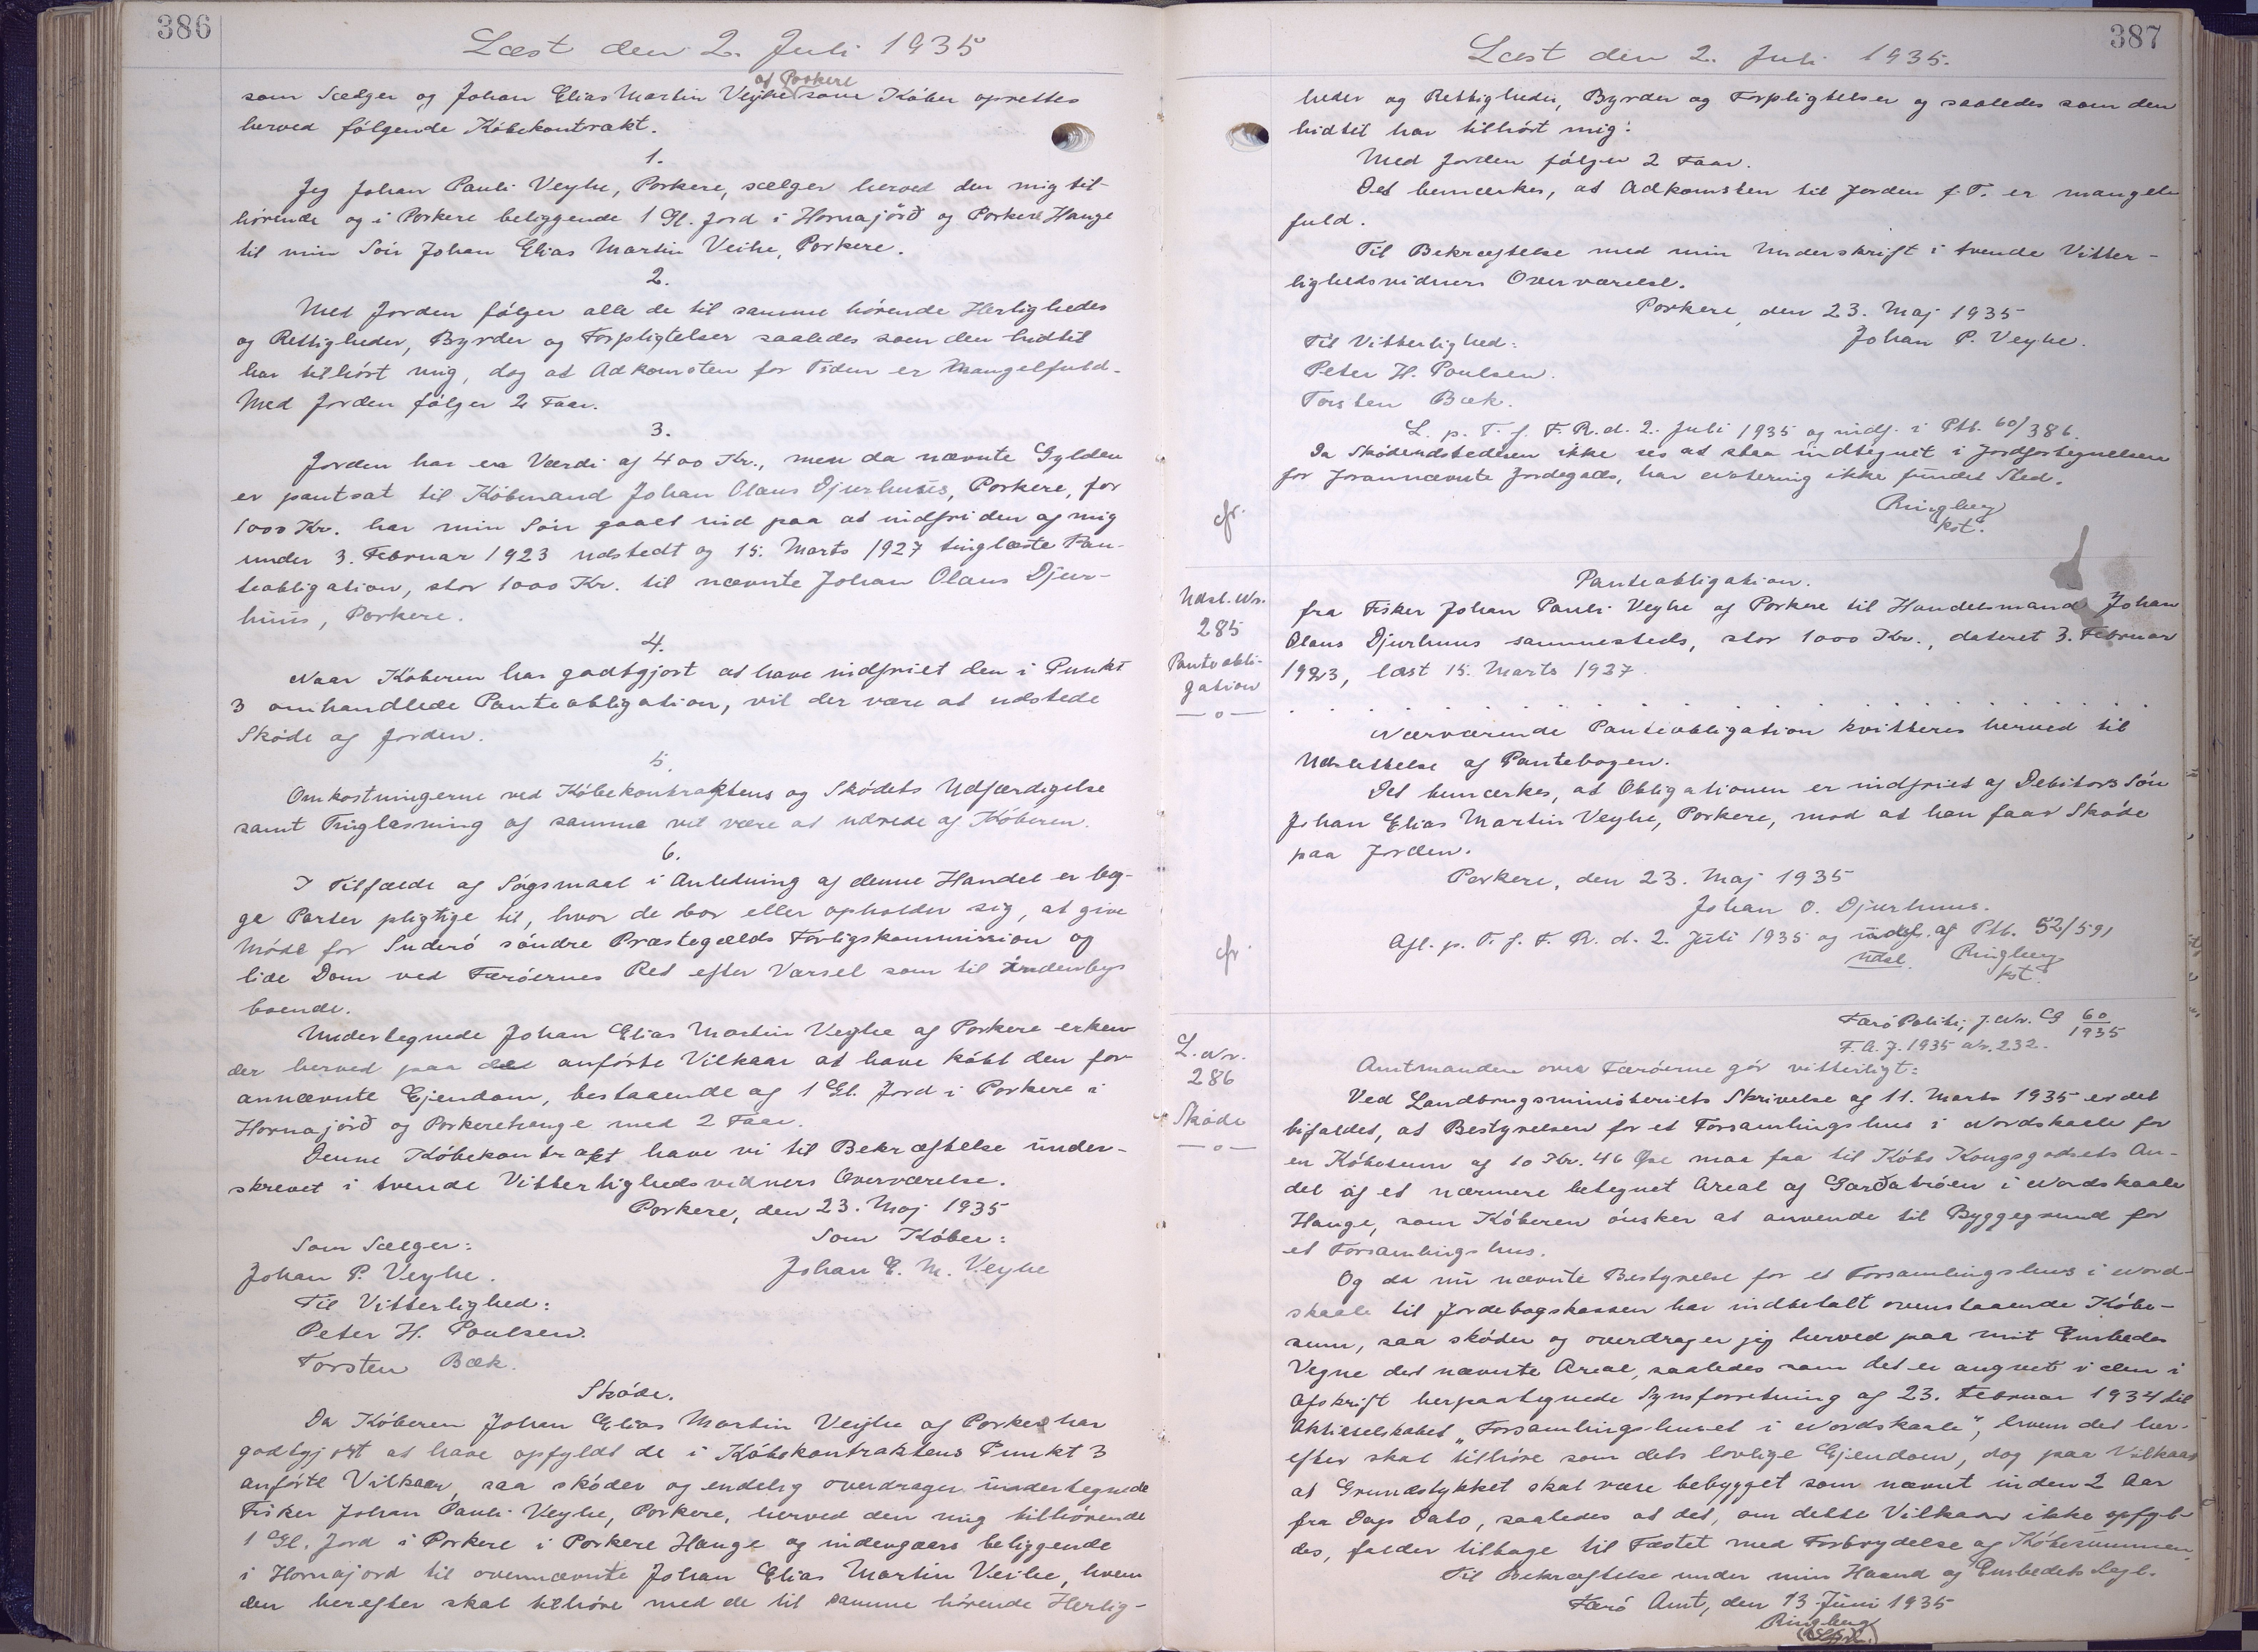 386
Læst den 2. Juli 1935
af Porkere
som Sælger og Johan Elias Martin Veyhe som Köber oprettes
herved fölgende Köbekontrakt.
1.
Jeg Johan Pauli Veyhe, Porkere, sælger herved den mig til-
hörende og i Porkere beliggende 1 Gl. Jord i Hornajörð og Porkere Hauge
til min Sön Johan Elias Martin Veihe, Porkere.
2.
Med Jorden fölger alle de til samme hörende Herligheder
og Rettigheder, Byrder og Forpligtelser saaledes som den hidtil
har tilhört mig, dog at Adkomsten for Tiden er mangelfuld.
Med Jorden fölger 2 Faar.
3.
Jorden har en Værdi af 400 Kr., men da nævnte Gylden
er pantsat til Köbmand Johan Olaus Djurhuus, Porkere, for
1000 Kr. har min Sön gaaet ind paa at indfri den af mig
under 3. Februar 1923 udstedt og 15. Marts 1927 tinglæste Pan-
teobligation, stor 1000 Kr. til nævnte Johan Olaus Djur-
huus, Porkere.
4.
Naar Köberen har godtgjort at have indfriet den i Punkt
3 omhandlede Panteobligation, vil der være at udstede
Sköde af Jorden.
5.
Omkostningerne ved Köbekontraktens og Sködets Udfærdigelse
samt Tinglæsning af samme vil være at udrede af Köberen.
6.
I Tilfælde af Sögsmaal i Anledning af denne Handel er beg-
ge Parter pligtige til, hvor de bor eller opholder sig, at give
Möde for Suderö söndre Præstegælds Forligskommission og
lide Dom ved Færöernes Ret efter Varsel som til indenbys
boende.
Undertegnede Johan Elias Martin Veyhe af Porkere erken-
der herved paa det anförte Vilkaar at have köbt den for-
annævnte Ejendom, bestaaende af 1 Gl. Jord i Porkere i
Hornajörð og Porkerehauge med 2 Faar.
Denne Köbekontrakt have vi til Bekræftelse under-
skrevet i tvende Vitterlighedsvidners Overværelse.
Porkere, den 23. Maj 1935
Som Sælger: Som Köber:
Johan P. Veyhe. Johan E. M. Veyhe
Til Vitterlighed:
Peter H. Poulsen.
Torsten Bæk.
Sköde.
Da Köberen Johan Elias Martin Veyhe af Porkere har
godtgjort at have opfyldt de i Köbekontraktens Punkt 3
anförte Vilkaar, saa sköder og endelig overdrager undertegnede
Fisker Johan Pauli Veyhe, Porkere, herved den mig tilhörende
1 Gl. Jord i Porkere i Porkere Hauge og indengaars beliggende
i Hornajord til ovennævnte Johan Elias Martin Veihe, hvem
den herefter skal tilhöre med de til samme hörende Herlig-
387
Læst den 2. Juli 1935.
heder og Rettigheder, Byrder og Forpligtelser og saaledes som den
hidtil har tilhört mig.
Med Jorden fölger 2 Faar.
Det bemærkes, at Adkomsten til Jorden f. T. er mangel-
fuld.
Til Bekræftelse med min Underskrift i tvende Vitter-
lighedsvidners Overværelse.
Porkere, den 23. Maj 1935
Til Vitterlighed: Johan P. Veyhe.
Peter H. Poulsen.
Torsten Bæk.
L. p. T. f. F. R. d. 2. Juli 1935 og indf. i Ptb. 60/386.
Da Sködeudstederen ikke ses at staa indtegnet i Jordfortegnelsen
for forannævnte Jordegods, har notering ikke fundet Sted.
cfr. Ringberg
kst.
Udsl. Nr.
285
Panteobli-
gation
Panteobligation.
fra Fisker Johan Pauli Veyhe af Porkere til Handelsmand Johan
Olaus Djurhuus sammesteds, stor 1000 Kr., dateret 3. Februar
1923, læst 15. Marts 1927.
Nærværende Panteobligation kvitteres herved til
Udslettelse af Pantebogen.
Det bemærkes, at Obligationen er indfriet af Debitors Sön
Johan Elias Martin Veyhe, Porkere, mod at han faar Sköde
paa Jorden.
Porkere, den 23. Maj 1935
Johan O. Djurhuus.
cfr. Afl. p. T. f. F. R. d. 2. Juli 1935 og af Ptb. 52/591
Udsl. Ringberg
kst.
L. Nr.
286
Sköde
Færö Politi, J. Nr. 60/1935
F. A. J. 1935 Nr. 232.
Amtmanden over Færöerne gör vitterligt:
Ved Landbrugsministeriets Skrivelse af 11. Marts 1935 er det
bifaldet, at Bestyrelsen for et Forsamlingshus i Nordskaale for
en Köbesum af 10 Kr. 46 Øre maa faa til Köbs Kongsgodsets An-
del af et nærmere betegnet Areal af Garðatröen i Nordskaale
Hauge, som Köberen önsker at anvende til Byggegrund for
et Forsamlingshus.
Og da nu nævnte Bestyrelse for et Forsamlingshus i Nord-
skaale til Jordebogskassen har indbetalt ovenstaaende Köbe-
sum, saa sköder og overdrager jeg herved paa mit Embedes
Vegne det nævnte Areal, saaledes som det er angivet i den i
Afskrift herpaategnede Synsforretning af 23. Februar 1934 til
Aktieselskabet „Forsamlingshuset i Nordskaale“, hvem det her-
efter skal tilhöre som dets lovlige Ejendom, dog paa Vilkaar
at Grundstykket skal være bebygget som nævnt inden 2 Aar
fra Dags Dato, saaledes at det, om dette Vilkaar ikke opfyl-
des, falder tilbage til Fæstet med Forbrydelse af Köbesummen.
Til Bekræftelse under min Haand og Embedets Segl.
Færö Amt, den 13 Juni 1935
Ringberg